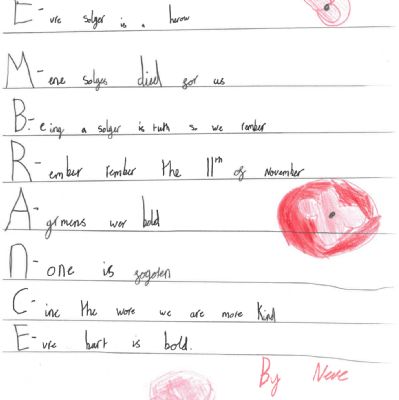 E- vre solger is a herow
M- ene solges died for us
B- eing a solger is ruth so we rember
R- ember rember the 11th of November
A- grmens wer bold
n- one is fogoten
C- inc the wore we are more kind
E- vre burt is bold.
By Neve